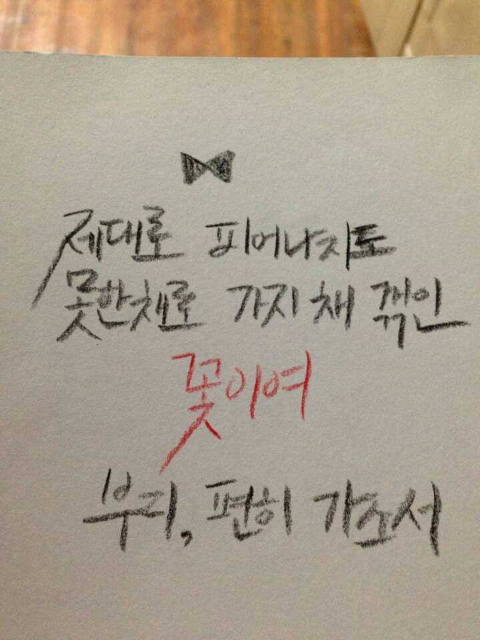 제대로 피어나지도
못한채로 가지 채 꺾인
꽃이여
부디, 편히 가소서